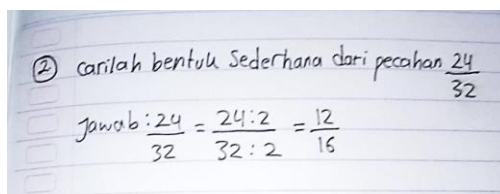 ② Carilah bentuk Sederhana dari pecahan 24/32
Jawab : 24/32 = 24:2/32:2 = 12/16